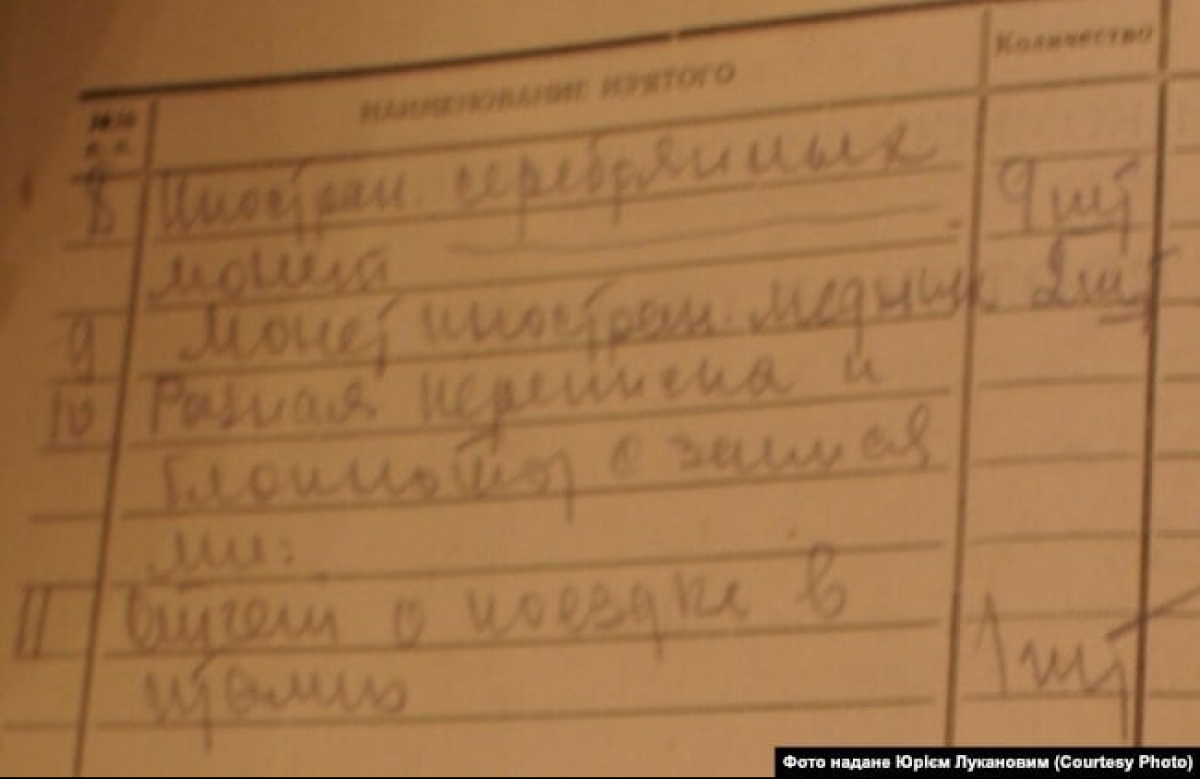 №№ п. п. НАИМЕНОВАНИЕ ИЗЪЯТОГО Количество
8 Иностран. серебрянных 9 шт
монет
9 Монет иностран. медных 2 шт
10 Разная переписка и
блокноты с запися
ми:
11 Отчет о поездке в
италию 1 шт
Фото надане Юрієм Лукановим (Courtesy Photo)